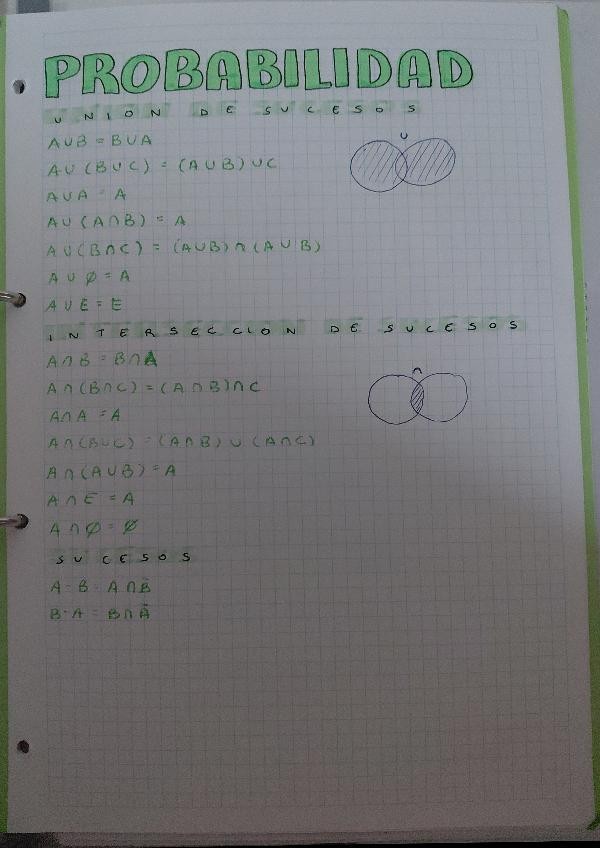 PROBABILIDAD
UNION DE SUCESOS
A∪B = B∪A
∪
A∪(B∪C) = (A∪B)∪C
A∪A = A
A∪(A∩B) = A
A∪(B∩C) = (A∪B)∩(A∪B)
A∪Ø = A
A∪E = E
INTERSECCION DE SUCESOS
A∩B = B∩A
∩
A∩(B∩C) = (A∩B)∩C
A∩A = A
A∩(B∪C) = (A∩B)∪(A∩C)
A∩(A∪B) = A
A∩E = A
A∩Ø = Ø
SUCESOS
A-B = A∩B̄
B-A = B∩Ā